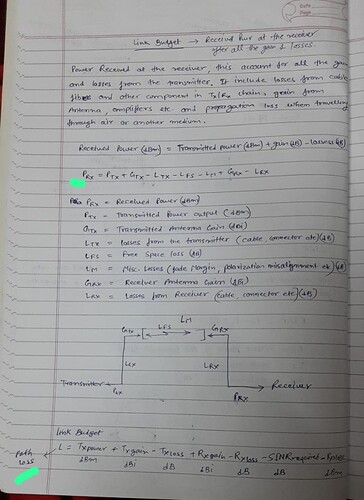 Date
Page
Link Budget → Received Pwr at the receiver
after all the gain & losses
Power Received at the receiver this account for all the gain
and losses from the transmitter. It include losses from cable
and other component in Tx/Rx chain, grain from
Antenna, amplifiers etc and propagation loss when travelling
through air or another medium.
Received Power (dBm) = Transmitted power (dBm) + gain (dB) -
PRx = PTx + GTx - LTX - LFS - LM + GRX - LRX
PRx = Received Power (dBm)
PTx = Transmitted Power output (dBm)
GTx = Transmitted Antenna Gain (dBi)
LTX = losses from the transmitter (cable, connector etc) (dB)
LFS = Free Space loss (dB)
LM = Misc. Losses (fade Margin, polarization misalignment etc) (dB)
GRX = Receiver Antenna Gain (dBi)
LRX = Losses from Receiver (cable, connector etc) (dB)
LM
GTx LFS GRX
LTX LRX
Transmitter Receiver
PTx PRx
Link Budget
Path loss L = Txpower + Txgain - Txloss + Rxgain - Rxloss - SINR required -
dBm dBi dB dBi dB dB dBm